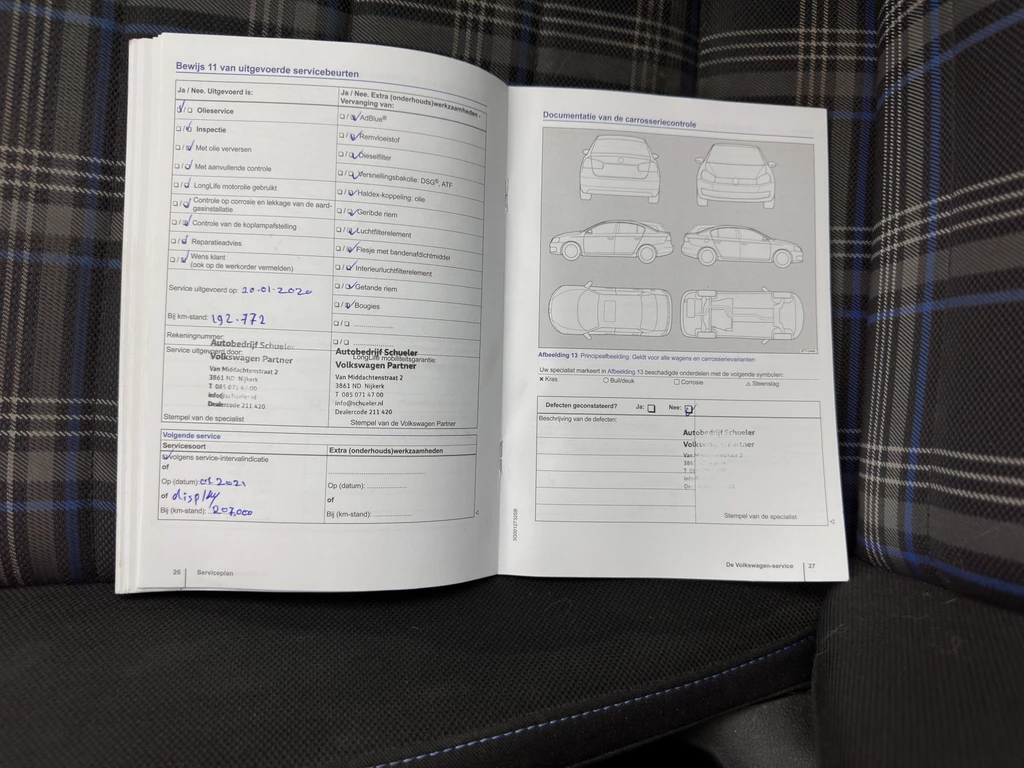 Bewijs 11 van uitgevoerde servicebeurten
Ja / Nee. Uitgevoerd is:
Olieservice
Inspectie
Met olie verversen
Met aanvullende controle
LongLife motorolie gebruikt
Controle op corrosie en lekkage van de aard-
gasinstallatie
Controle van de koplampafstelling
Reparatieadvies
Wens klant
(ook op de werkorder vermelden)
Service uitgevoerd op: 20-01-2020
Bij km-stand: 192.772
Rekeningnummer:
Service uitgevoerd door:
Autobedrijf Schueler
Volkswagen Partner
Van Middachtenstraat 2
3861 ND Nijkerk
T 085 071 47 00
info@schueler.nl
Dealercode 211 420
Stempel van de specialist
Ja / Nee. Extra (onderhouds)werkzaamheden -
Vervanging van:
AdBlue®
Remvloeistof
Dieselfilter
Versnellingsbakolie: DSG®, ATF
Haldex-koppeling: olie
Geribde riem
Luchtfilterelement
Flesje met bandenafdichtmiddel
Interieurluchtfilterelement
Getande riem
Bougies
LongLife mobiliteitsgarantie:
Autobedrijf Schueler
Volkswagen Partner
Van Middachtenstraat 2
3861 ND Nijkerk
T 085 071 47 00
info@schueler.nl
Dealercode 211 420
Stempel van de Volkswagen Partner
Volgende service
Servicesoort
volgens service-intervalindicatie
of
Op (datum): 01.2021
of display
Bij (km-stand): 207,000
Extra (onderhouds)werkzaamheden
Op (datum):
of
Bij (km-stand):
26 Serviceplan
Documentatie van de carrosseriecontrole
Afbeelding 13 Principeafbeelding. Geldt voor alle wagens en carrosserievarianten
Uw specialist markeert in Afbeelding 13 beschadigde onderdelen met de volgende symbolen:
× Kras ○ Buil/deuk □ Corrosie △ Steenslag
Defecten geconstateerd? Ja: Nee:
Beschrijving van de defecten:
Autobedrijf Schueler
Stempel van de specialist
De Volkswagen-service 27